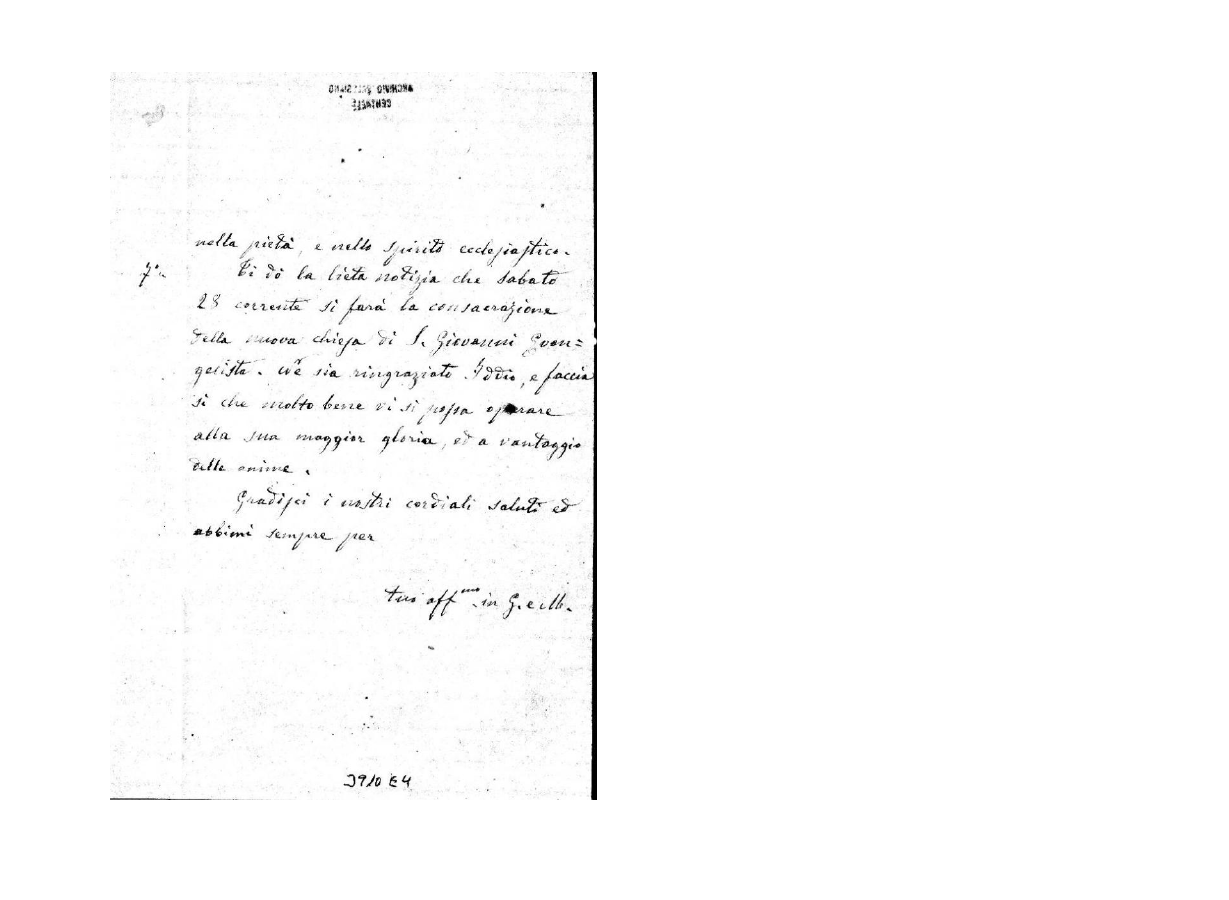 ARCHIVIO SALESIANO
CENTRALE
nella pietà, e nello spirito ecclesiastico.
7º. Ti dò la lieta notizia che sabato
28 corrente si farà la consacrazione
della nuova chiesa di S. Giovanni Evan=
gelista. Ne sia ringraziato Iddio, e faccia
sì che molto bene vi si possa operare
alla sua maggior gloria, ed a vantaggio
delle anime.
Gradisci i nostri cordiali saluti ed
abbimi sempre per
tuo aff.mo in G. e M.
3910 E4